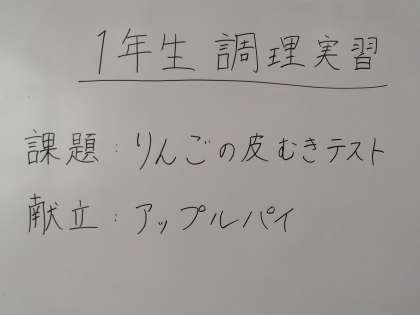 1年生 調理実習
課題:りんごの皮むきテスト
献立:アップルパイ